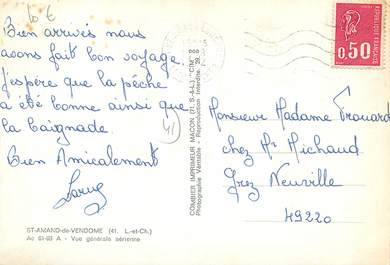 10 €
Bien arrivés nous
avons fait bon voyage.
J'espère que la pêche
a été bonne ainsi que
la baignade.
Bien Amicalement
41
ST-AMAND-de-VENDOME (41. L.-et-Ch.)
Ac 61-93 A - Vue générale aérienne
COMBIER IMPRIMEUR MACON (71. S.-&-L.) "CIM"
Photographie Véritable - Reproduction Interdite
0,50
Monsieur Madame Frouard
chez Mr Michaud
Grez Neuville
49220